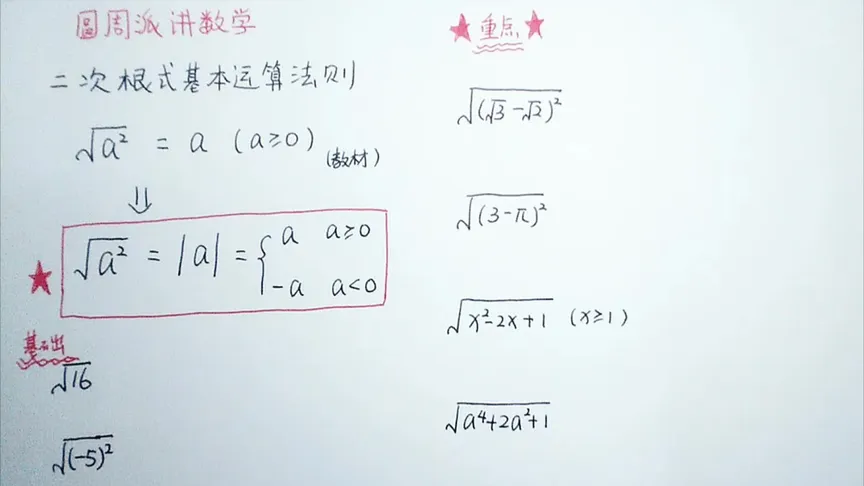 圆周派讲数学
二次根式基本运算法则
√a² = a (a≥0) (教材)
⇓
★ √a² = |a| = { a a≥0
-a a<0
基础
√16
√(-5)²
★重点★
√(√3-√2)²
√(3-π)²
√x²-2x+1 (x≥1)
√a⁴+2a²+1